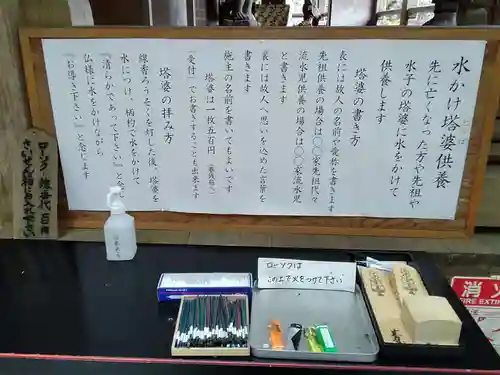 水かけ塔婆供養
先に亡くなった方や先祖や
水子の塔婆に水をかけて
供養します
塔婆の書き方
表には故人の名前や愛称を書きます
先祖供養の場合は〇〇家先祖代々
流水児供養の場合は〇〇家流水児
と書きます
裏には故人へ思いを込めた言葉を
書きます
施主の名前を書いてもよいです
塔婆は一枚五百円
「受付」でお書きすることも出来ます
塔婆の拝み方
線香ろうそくを灯した後、塔婆を
水につけ、柄杓で水をかけて
『清らかであって下さい』と念
仏様に水をかけながら
『お導き下さい』と念じます
ローソク 線香代 百円
さいせん箱に お入れ下さい
ローソクは
この上で火をつけて下さい
消火
FIRE EXTIN